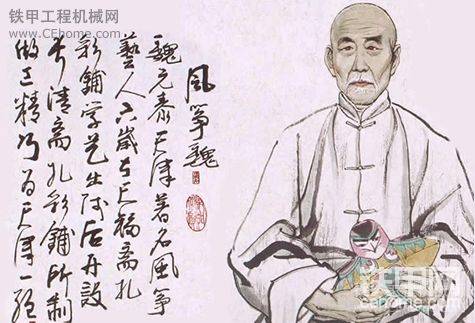 铁甲工程机械网
www.CEhome.com
风筝魏
魏元泰天津著名风筝
藝人六歲天福斋扎
彩鋪学艺出师后开設
长清斋扎彩鋪所制
做工精巧为天津一绝
铁甲网